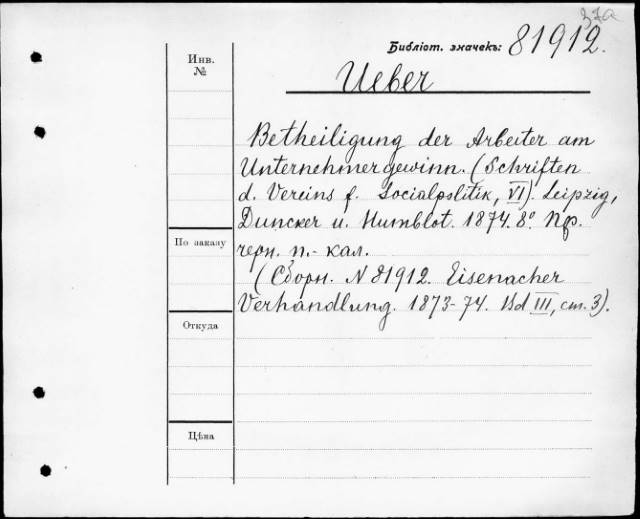 37а
Библіот. значекъ: 81912.
Инв. №
Ueber
Betheiligung der Arbeiter am
Unternehmergewinn. (Schriften
d. Vereins f. Socialpolitik, VI). Leipzig,
Duncker u. Humblot. 1874. 8º. Пр.
черн. п.-кал.
По заказу
(Сборн. N 81912. Eisenacher
Verhandlung. 1873-74. Bd III, ст. 3).
Откуда
Цѣна